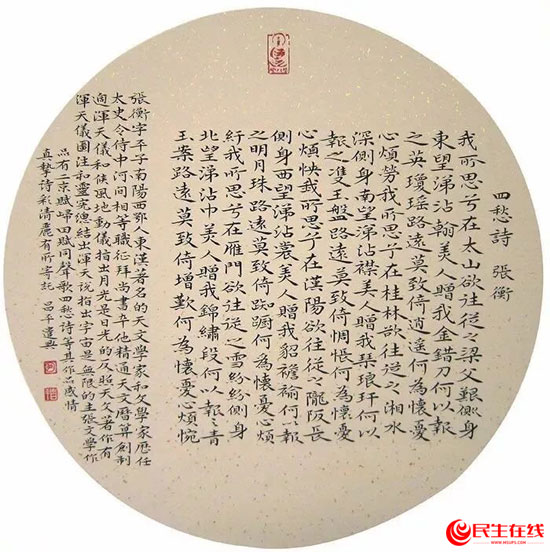 四愁詩 張衡
我所思兮在太山欲往從之梁父艱側身
東望涕沾翰美人贈我金錯刀何以報
之英瓊瑤路遠莫致倚逍遙何為懷憂
心煩勞我所思兮在桂林欲往從之湘水
深側身南望涕沾襟美人贈我琴琅玕何以
報之雙玉盤路遠莫致倚惆悵何為懷憂
心煩怏我所思兮在漢陽欲往從之隴阪長
側身西望涕沾裳美人贈我貂襜褕何以報
之明月珠路遠莫致倚踟躕何為懷憂心煩
紆我所思兮在雁門欲往從之雪紛紛側身
北望涕沾巾美人贈我錦繡段何以報之青
玉案路遠莫致倚增歎何為懷憂心煩惋
張衡字平子南陽西鄂人東漢著名的天文學家和文學家歷任
太史令侍中河间相等職征拜尚書卒他精通天文曆算創制
渾天儀和候風地動儀指出月光是日光的反照天文著作有
渾天儀圖注和靈憲總結出渾天説指出宇宙是無限的主張文學作
品有二京賦歸田賦同聲歌四愁詩等其作品感情
真摯詩彩清麗有所寄託
民生在线